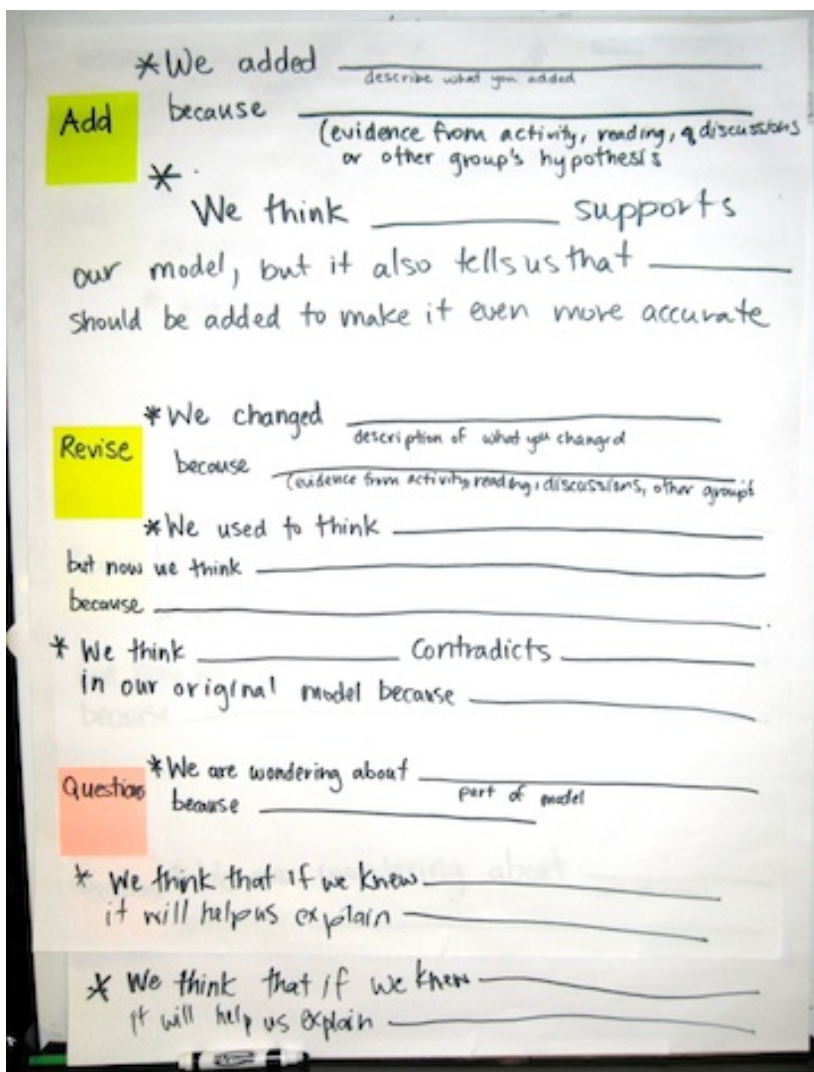 *We added ____________
describe what you added
Add
because ____________
(evidence from activity, reading, & discussions
or other group's hypothesis
*
We think ________ supports
our model, but it also tells us that ________
should be added to make it even more accurate
*We changed ____________
description of what you changed
Revise
because ____________
(evidence from activity, reading, discussions, other groups
*We used to think ____________
but now we think ____________
because ____________
* We think ________ contradicts ________
in our original model because ________
*We are wondering about ____________
part of model
Questions
because ____________
* We think that if we knew ____________
it will help us explain ____________
* We think that if we knew ____________
it will help us explain ____________